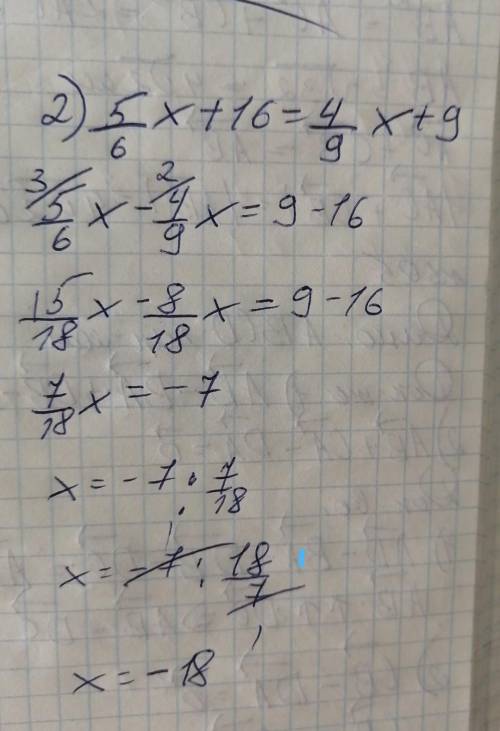 2) 5/6 x + 16 = 4/9 x + 9
3/ 5/6 x - 2/ 4/9 x = 9 - 16
15/18 x - 8/18 x = 9 - 16
7/18 x = - 7
x = - 7 : 7/18
x = - 7 : 18/7
x = - 18